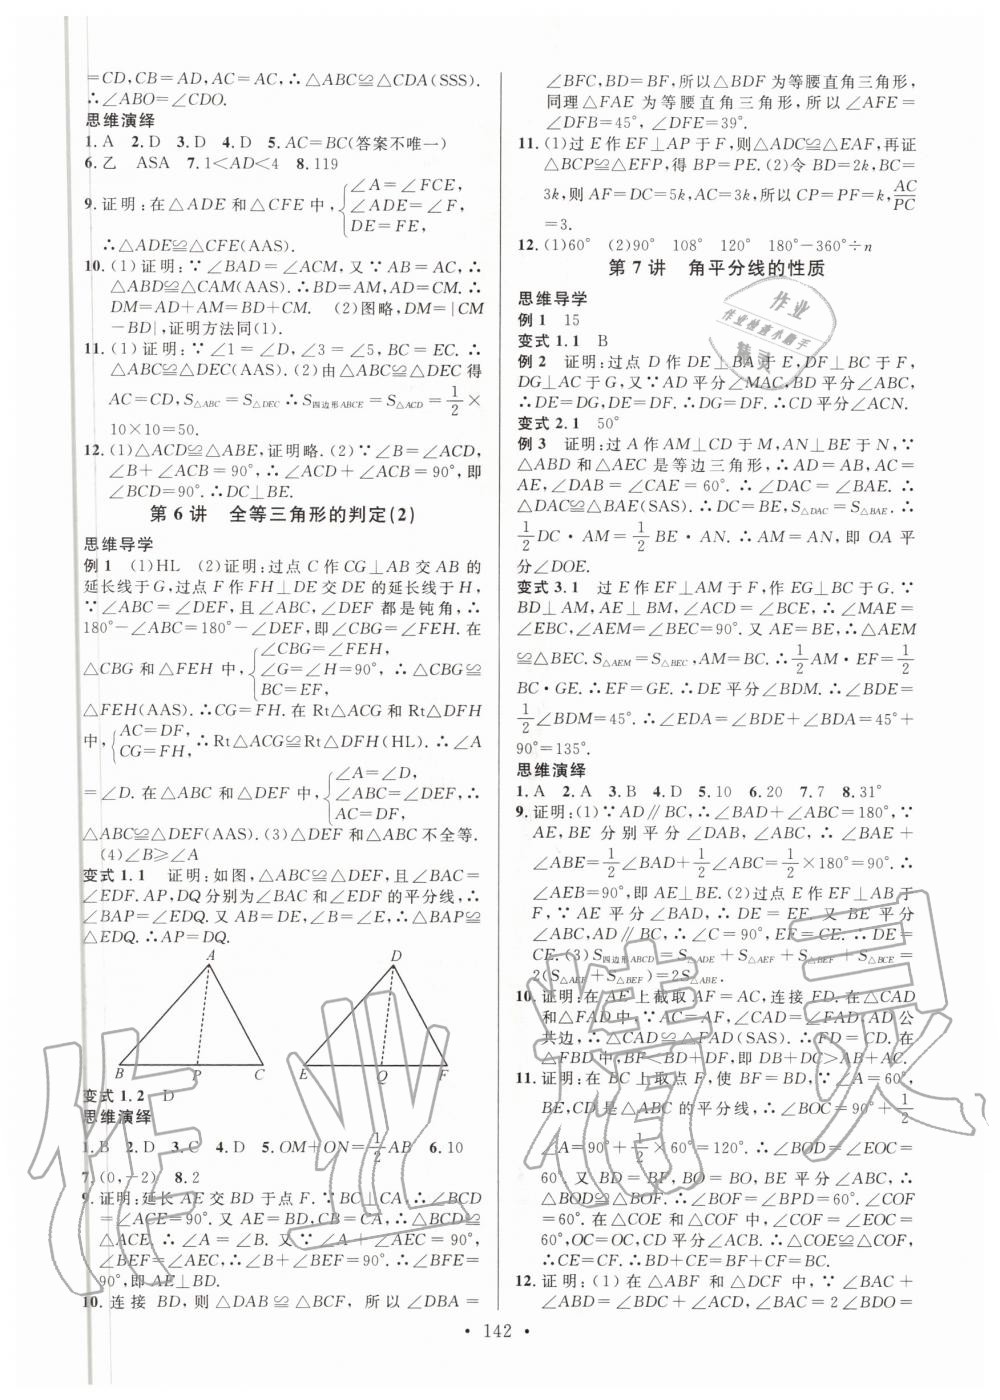 =CD,CB=AD,AC=AC,∴△ABC≌△CDA(SSS).
∴∠ABO=∠CDO.
思维演绎
1.A 2.D 3.D 4.D 5.AC=BC(答案不唯一)
6.乙 ASA 7.1<AD<4 8.119
9.证明:在△ADE和△CFE中,{∠A=∠FCE,
∠ADE=∠F,
DE=FE,
∴△ADE≌△CFE(AAS).
10.(1)证明:∵∠BAD=∠ACM,又∵AB=AC,∴
△ABD≌△CAM(AAS).∴BD=AM,AD=CM.∴
DM=AD+AM=BD+CM. (2)图略,DM=|CM
-BD|,证明方法同(1).
11.(1)证明:∵∠1=∠D,∠3=∠5,BC=EC.∴
△ABC≌△DEC(AAS).(2)由△ABC≌△DEC得
AC=CD,S△ABC=S△DEC ∴S四边形ABCE=S△ACD=1/2×
10×10=50.
12.(1)△ACD≌△ABE,证明略.(2)∵∠B=∠ACD,
∠B+∠ACB=90°,∴∠ACD+∠ACB=90°,即
∠BCD=90°.∴DC⊥BE.
第6讲 全等三角形的判定(2)
思维导学
例1 (1)HL (2)证明:过点C作CG⊥AB交AB的
延长线于G,过点F作FH⊥DE交DE的延长线于H,
∵∠ABC=∠DEF,且∠ABC,∠DEF都是钝角,∴
180°-∠ABC=180°-∠DEF,即∠CBG=∠FEH.在
△CBG和△FEH中,{∠CBG=∠FEH,
∠G=∠H=90°,
BC=EF,
∴△CBG≌
△FEH(AAS).∴CG=FH.在Rt△ACG和Rt△DFH
中,{AC=DF,
CG=FH,
∴Rt△ACG≌Rt△DFH(HL).∴∠A
=∠D.在△ABC和△DEF中,{∠A=∠D,
∠ABC=∠DEF,∴
AC=DF,
△ABC≌△DEF(AAS).(3)△DEF和△ABC不全等.
(4)∠B≥∠A
变式1.1 证明:如图,△ABC≌△DEF,且∠BAC=
∠EDF.AP,DQ分别为∠BAC和∠EDF的平分线,∴
∠BAP=∠EDQ.又AB=DE,∠B=∠E,∴△BAP≌
△EDQ.∴AP=DQ.
A D
B P C E Q F
变式1.2 D
思维演绎
1.B 2.D 3.C 4.D 5.OM+ON=1/2AB 6.10
7.(0,-2) 8.2
9.证明:延长AE交BD于点F.∵BC⊥CA,∴∠BCD
=∠ACE=90°.又AE=BD,CB=CA,∴△BCD≌
△ACE.∴∠A=∠B.又∵∠A+∠AEC=90°,
∠BEF=∠AEC,∴∠B+∠BEF=90°.∴∠BFE=
90°,即AE⊥BD.
10.连接BD,则△DAB≌△BCF,所以∠DBA=
∠BFC,BD=BF,所以△BDF为等腰直角三角形,
同理△FAE为等腰直角三角形,所以∠AFE=
∠DFB=45°,∠DFE=39°.
11.(1)过E作EF⊥AP于F,则△ADC≌△EAF,再证
△BCP≌△EFP,得BP=PE.(2)令BD=2k,BC=
3k,则AF=DC=5k,AC=3k,所以CP=PF=k,AC/PC
=3.
12.(1)60° (2)90° 108° 120° 180°-360°÷n
第7讲 角平分线的性质
思维导学
例1 15
变式1.1 B
例2 证明:过点D作DE⊥BA于E,DF⊥BC于F,
DG⊥AC于G,又∵AD平分∠MAC,BD平分∠ABC,
∴DE=DG,DE=DF.∴DG=DF.∴CD平分∠ACN.
变式2.1 50°
例3 证明:过A作AM⊥CD于M,AN⊥BE于N,∵
△ABD和△AEC是等边三角形,∴AD=AB,AC=
AE,∠DAB=∠CAE=60°.∴∠DAC=∠BAE.∴
△DAC≌△BAE(SAS).∴DC=BE,S△DAC=S△BAE.∴
1/2DC·AM=1/2BE·AN.∴AM=AN,即OA平
分∠DOE.
变式3.1 过E作EF⊥AM于F,作EG⊥BC于G.∵
BD⊥AM,AE⊥BM,∠ACD=∠BCE,∴∠MAE=
∠EBC,∠AEM=∠BEC=90°.又AE=BE,∴△AEM
≌△BEC.S△AEM=S△BEC,AM=BC.∴1/2AM·EF=1/2
BC·GE.∴EF=GE.∴DE平分∠BDM.∴∠BDE=
1/2∠BDM=45°.∴∠EDA=∠BDE+∠BDA=45°+
90°=135°.
思维演绎
1.A 2.A 3.B 4.D 5.10 6.20 7.7 8.31°
9.证明:(1)∵AD∥BC,∴∠BAD+∠ABC=180°,∵
AE,BE分别平分∠DAB,∠ABC,∴∠BAE+
∠ABE=1/2∠BAD+1/2∠ABC=1/2×180°=90°.∴
∠AEB=90°,即AE⊥BE.(2)过点E作EF⊥AB于
F,∵AE平分∠BAD,∴DE=EF.又BE平分
∠ABC,AD∥BC,∴∠C=90°,EF=CE.∴DE=
CE.(3)S四边形ABCD=S△ADE+S△AEF+S△BEF+S△BCE=
2(S△AEF+S△BEF)=2S△ABE.
10.证明:在AB上截取AF=AC,连接FD.在△CAD
和△FAD中,∵AC=AF,∠CAD=∠FAD,AD公
共边,∴△CAD≌△FAD(SAS).∴FD=CD.在
△FBD中,BF<BD+DF,即DB+DC>AB+AC.
11.证明:在BC上取点F,使BF=BD,∵∠A=60°,
BE,CD是△ABC的平分线,∴∠BOC=90°+1/2
∠A=90°+1/2×60°=120°.∴∠BOD=∠EOC=
60°.又BD=BF,BO=BO,BE平分∠ABC,∴
△BOD≌△BOF.∴∠BOF=∠BPD=60°.∠COF
=60°.在△COE和△COF中,∠COF=∠EOC=
60°,OC=OC,CD平分∠ACB.∴△COE≌△COF,
∴CE=CF.∴BD+CE=BF+CF=BC.
12.证明:(1)在△ABF和△DCF中,∵∠BAC+
∠ABD=∠BDC+∠ACD,∠BAC=2∠BDO=
·142·
作业
作业检查小助手
精灵
作业精灵